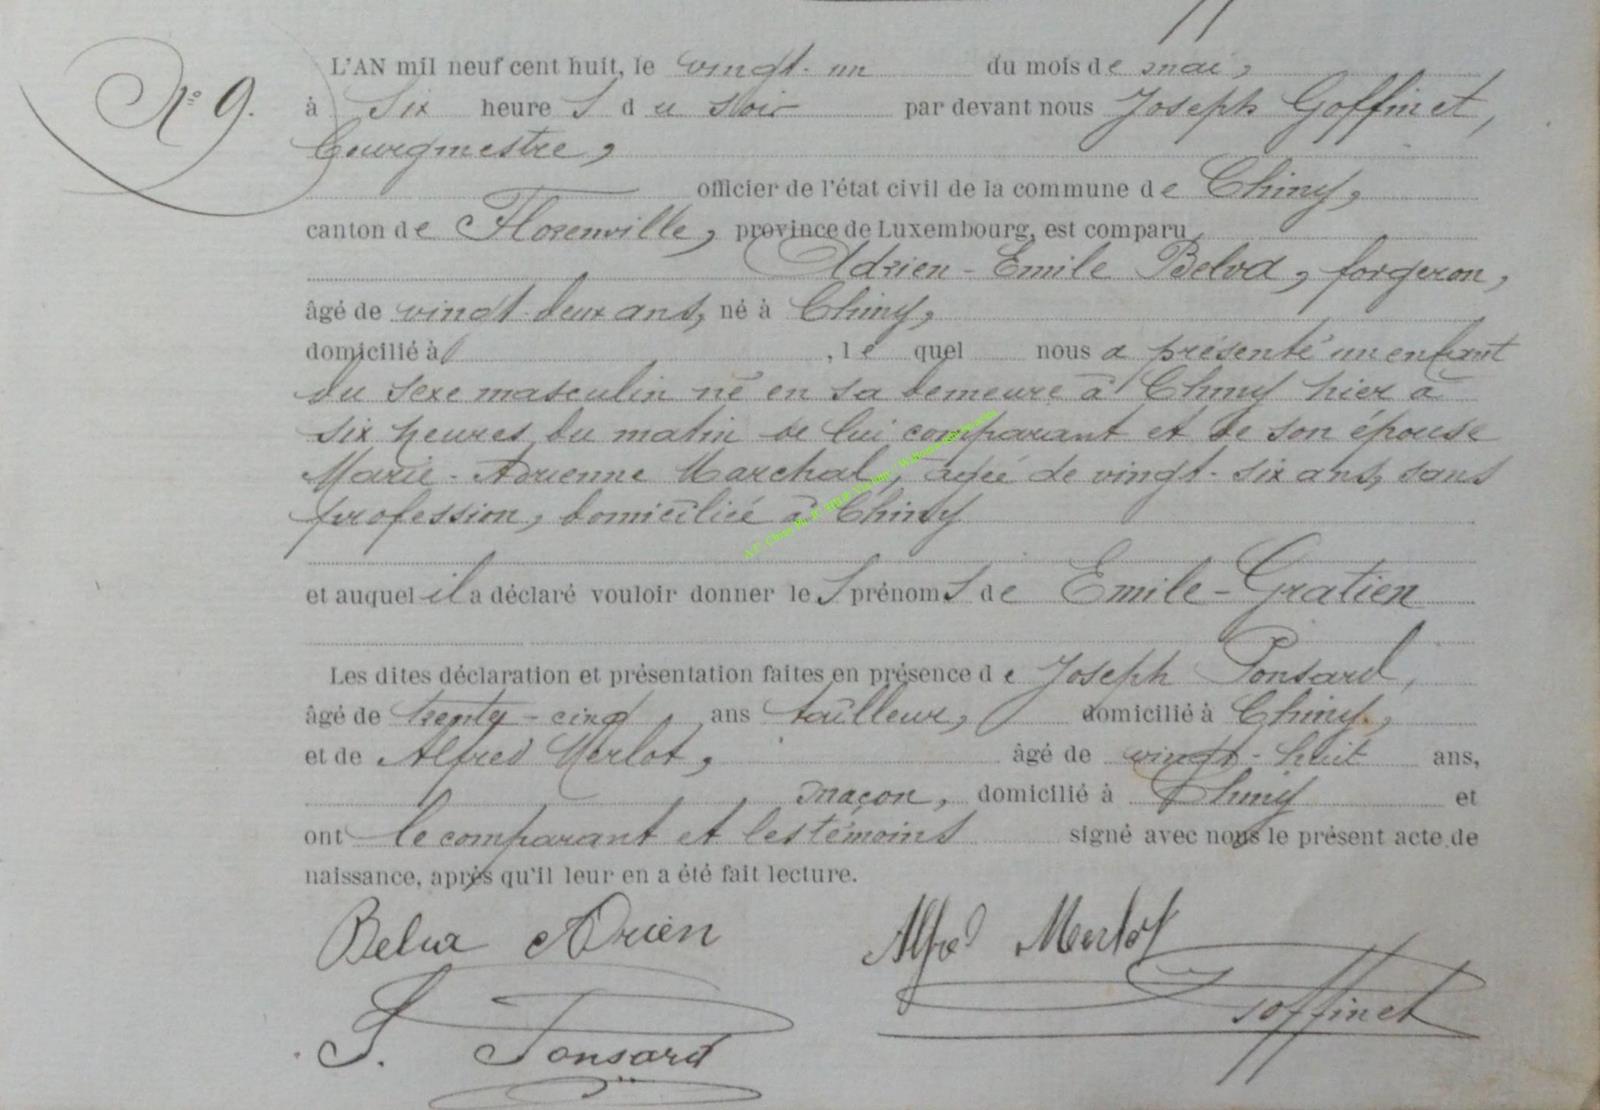 N° 9.
L'AN mil neuf cent huit, le vingt-un du mois de mai,
à Six heures du soir par devant nous Joseph Goffinet,
bourgmestre,
officier de l'état civil de la commune de Chiny,
canton de Florenville, province de Luxembourg, est comparu
Adrien-Emile Belva, forgeron,
âgé de vingt-deux ans, né à Chiny,
domicilié à , lequel nous a présenté un enfant
du sexe masculin né en sa demeure à Chiny hier à
six heures du matin de lui comparant et de son épouse
Marie-Adrienne Marchal, âgée de vingt-six ans, sans
profession, domiciliée à Chiny
et auquel il a déclaré vouloir donner les prénoms de Emile-Gratien
Les dites déclaration et présentation faites en présence de Joseph Ponsard,
âgé de trente-cinq ans tailleur, domicilié à Chiny,
et de Alfred Merlot, âgé de vingt-huit ans,
maçon, domicilié à Chiny et
ont le comparant et les témoins signé avec nous le présent acte de
naissance, après qu'il leur en a été fait lecture.
Belva Adrien Alfred Merlot
J. Ponsard Goffinet